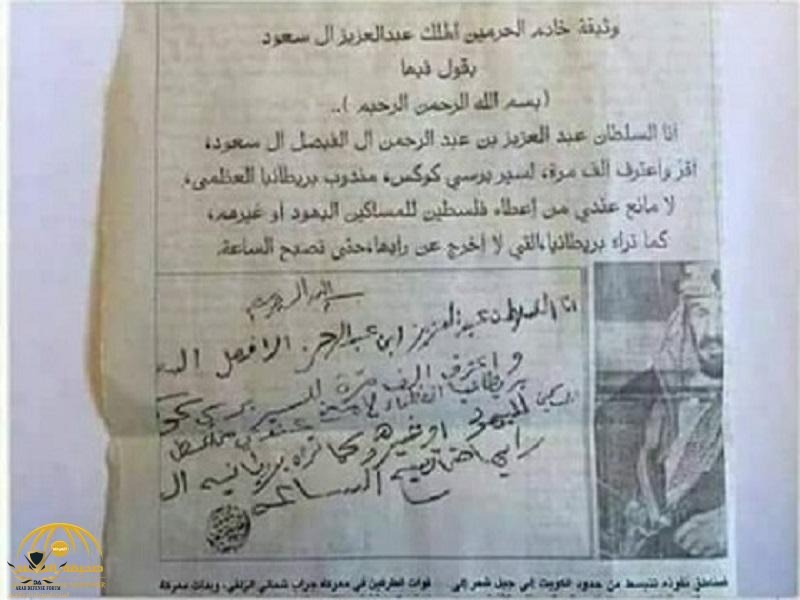 وثيقة خادم الحرمين الملك عبدالعزيز ال سعود
يقول فيها
(بسم الله الرحمن الرحيم )..
انا السلطان عبد العزيز بن عبد الرحمن ال الفيصل ال سعود،
اقر واعترف الف مرة، لسير برسي كوكس، مندوب بريطانيا العظمى،
لا مانع عندي من إعطاء فلسطين للمساكين اليهود او غيرهم،
كما تراه بريطانيا،التي لا اخرج عن رايها،حتى تصبح الساعة.
انا السلطان عبد العزيز ابن عبد الرحمن ال
واعترف الف مرة لسير برسي
بريطانيا العظما لا عندي
لليهود او غيرهم كما تراه بريطانيه
رايها الساعه
فمناطق نفوذه تنبسط من حدود الكويت إلى جبل شمر إلى
قوات الطرفين في معركة جراب شمالي الزلفي، وبدات معركة
DA
ARAB DEFENSE FORUM